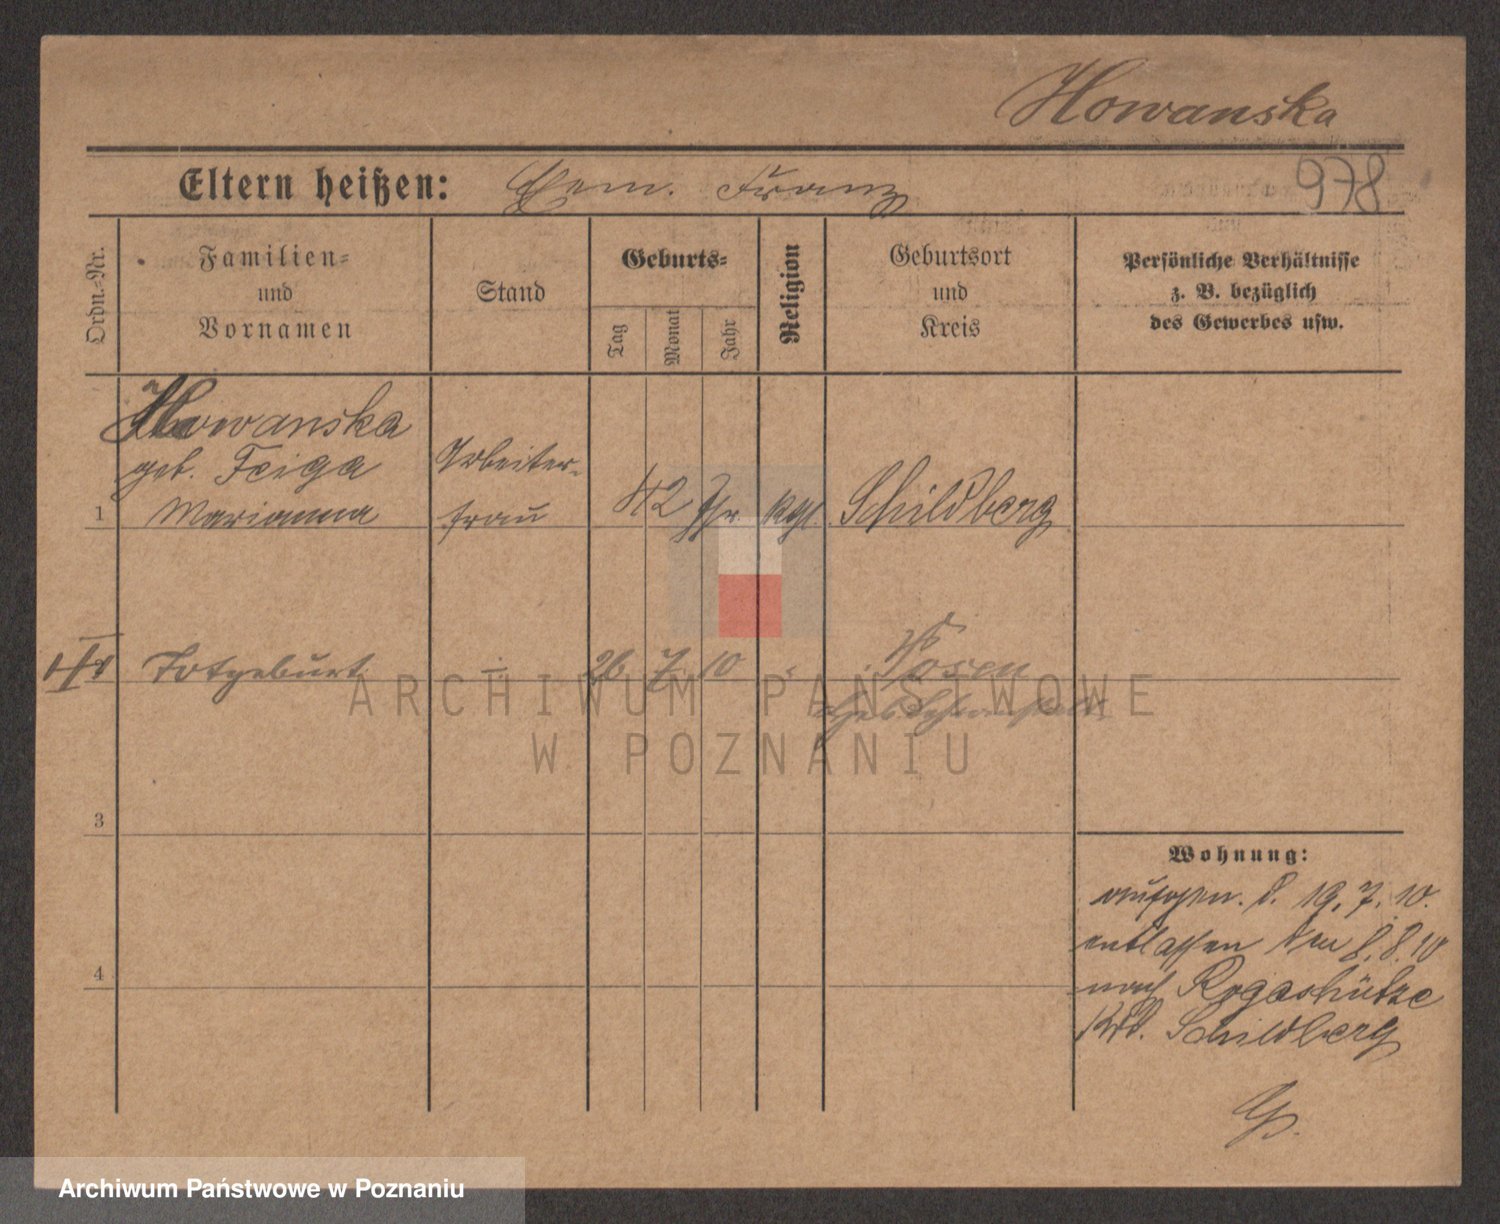 Howanska
Eltern heißen: Ehem. Franz 978
Ordn.-Nr.
Familien- und Vornamen
Stand
Geburts-
Tag
Monat
Jahr
Religion
Geburtsort und Kreis
Persönliche Verhältnisse
z. B. bezüglich
des Gewerbes usw.
Howanska
geb. Feiga
Marianna
Arbeiter-
frau
42 Jhr. kath. Schildberg
1
Totgeburt - 26 7 10 - Posen
3
4
Wohnung:
aufgen. d. 19. 7. 10.
entlassen den 8. 8. 10
nach Rogaschütze
Krs. Schildberg
ARCHIWUM PAŃSTWOWE
W POZNANIU
Archiwum Państwowe w Poznaniu